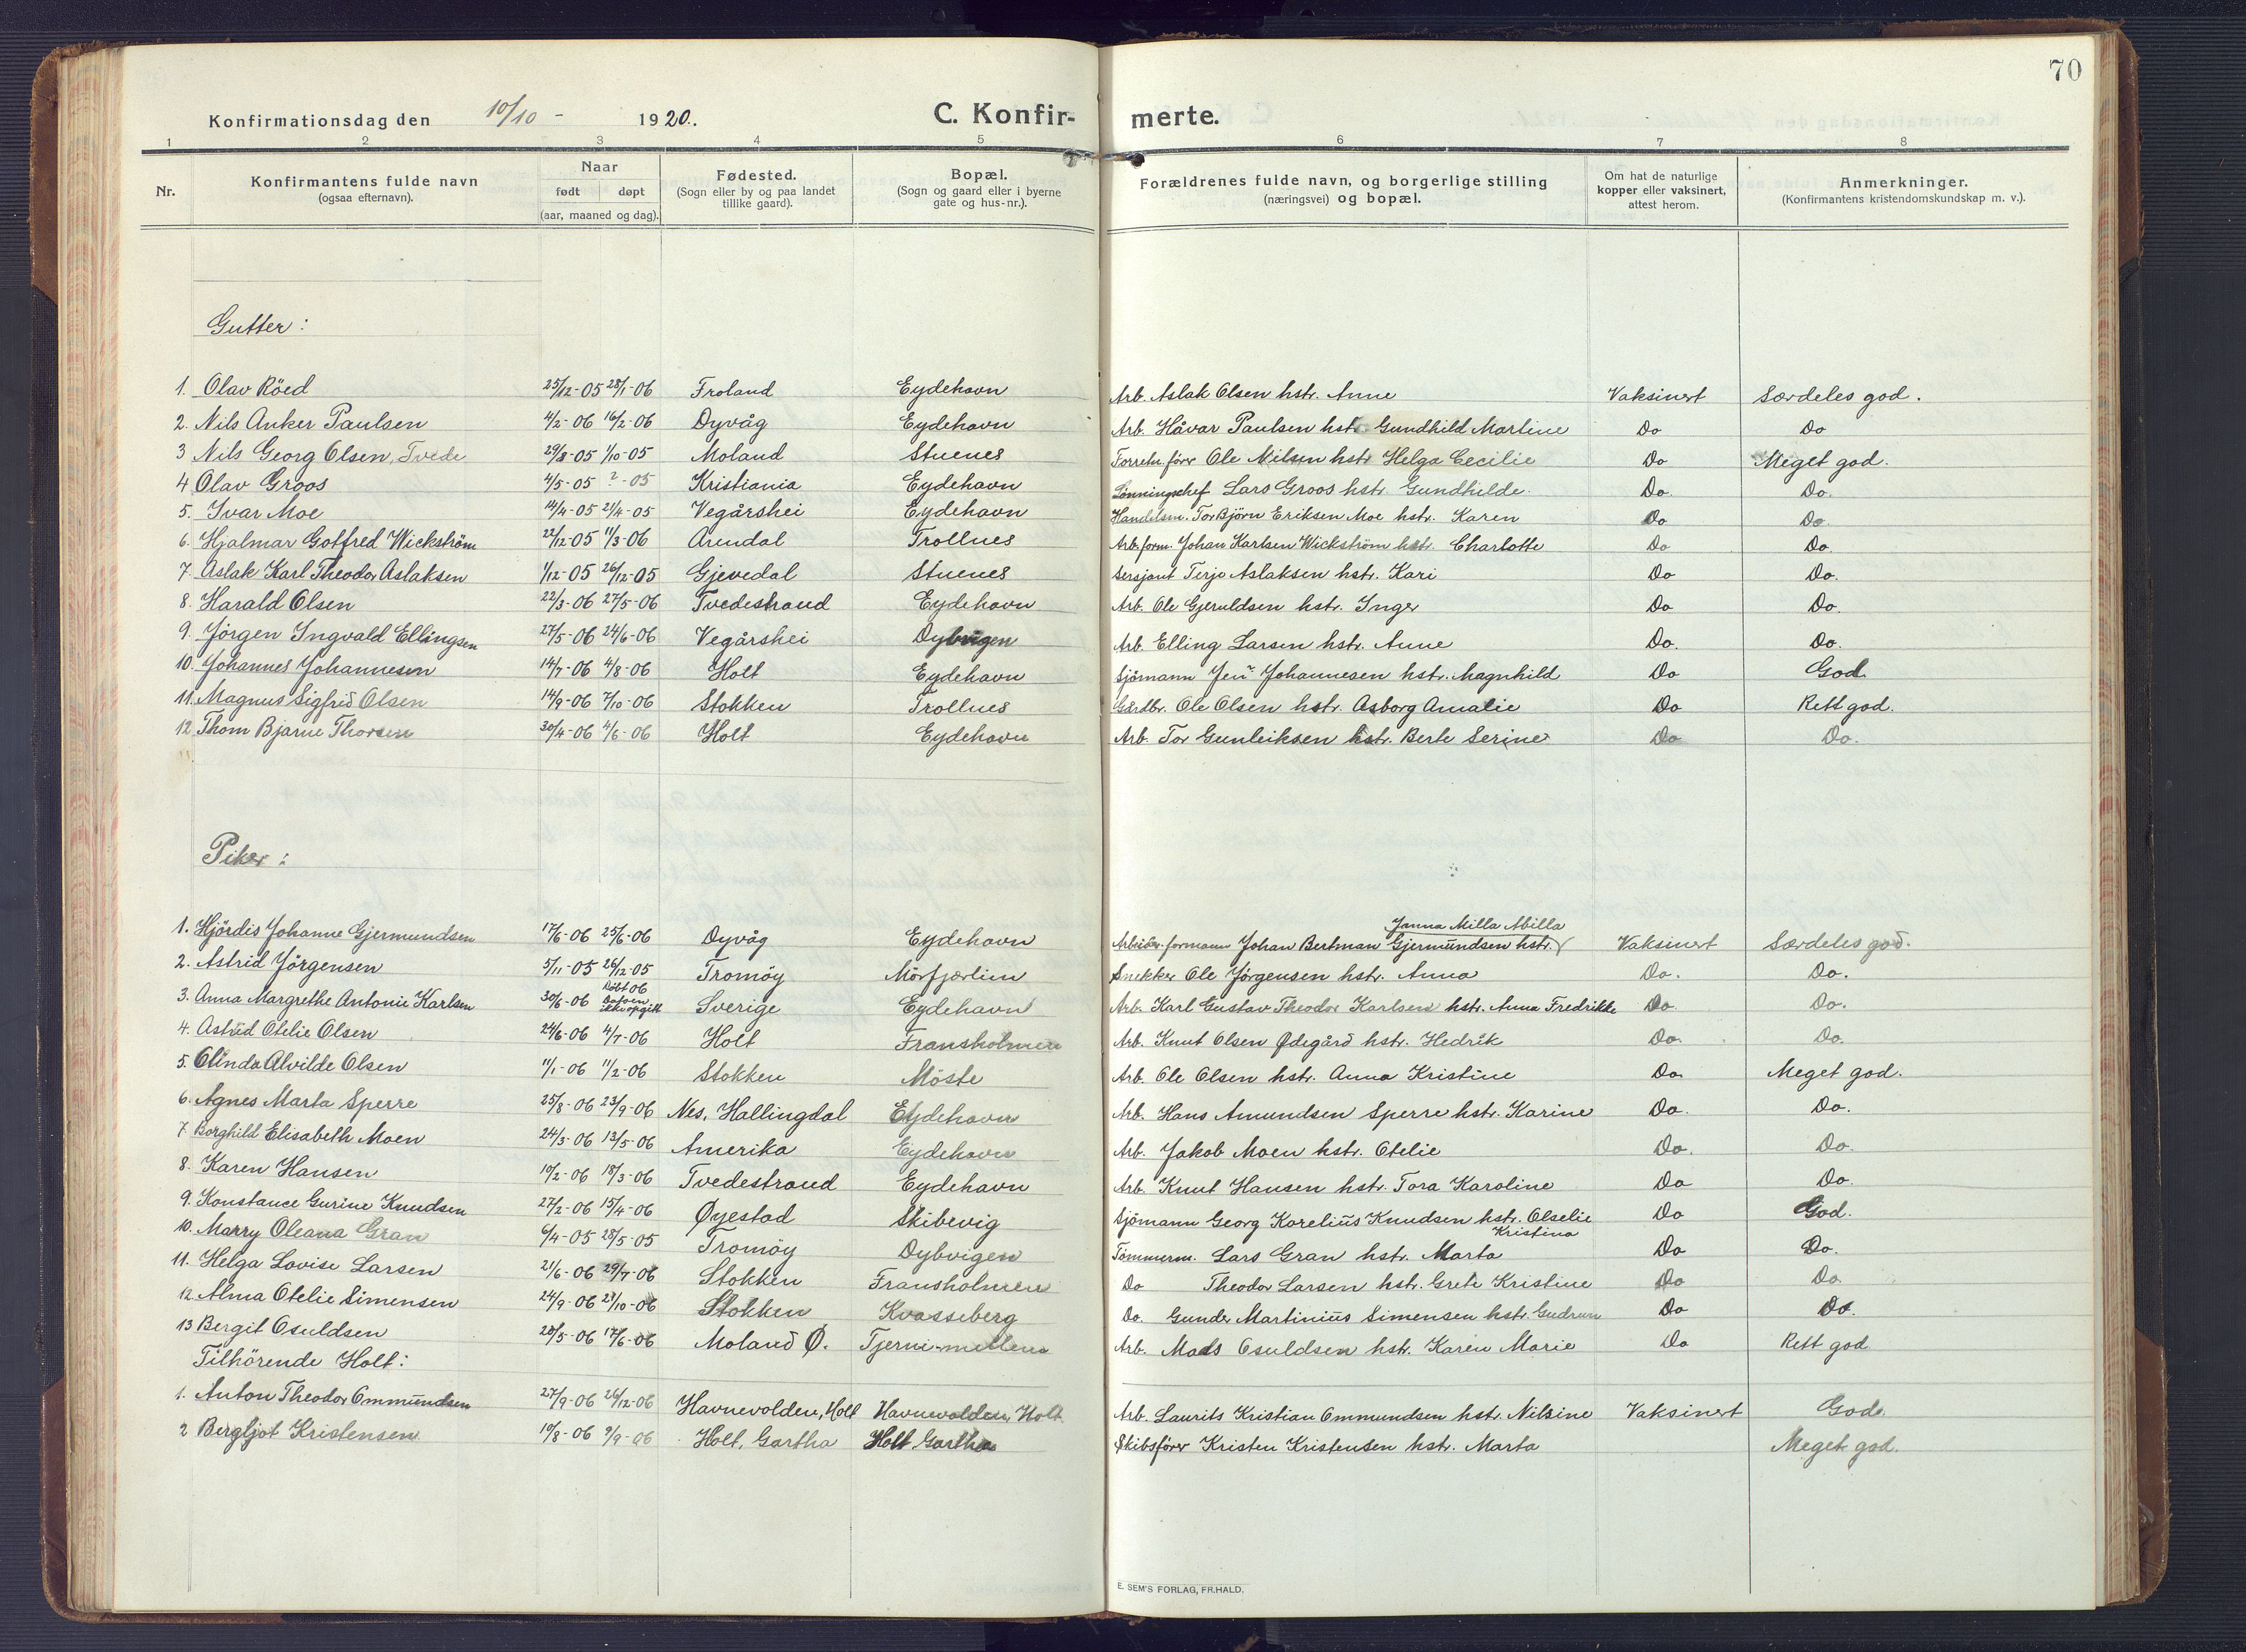 70
Konfirmationsdag den 10/10 - 1920. C. Konfir- merte.
1 2 3 4 5 6 7 8
Nr. Konfirmantens fulde navn (ogsaa efternavn). Naar født døpt (aar, maaned og dag). Fødested. (Sogn eller by og paa landet tillike gaard). Bopæl. (Sogn og gaard eller i byerne gate og hus-nr.). Forældrenes fulde navn, og borgerlige stilling (næringsvei) og bopæl. Om hat de naturlige kopper eller vaksinert, attest herom. Anmerkninger. (Konfirmantens kristendomskundskap m. v.).
Gutter:
1. Olav Röed 25/12-05 28/1-06 Froland Eydehavn Arb. Aslak Olsen hstr. Anne Vaksinert Særdeles god.
2. Nils Anker Paulsen 4/2-06 16/2-06 Dyvåg Eydehavn Arb. Håvar Paulsen hstr. Gundhild Martine Do Do
3 Nils Georg Olsen, Tvede 29/8-05 1/10-05 Moland Stuenes Forretn. förer Ole Nilsen hstr Helga Cecilie Do Meget god.
4 Olav Groos 4/5-05 ?-05 Kristiania Eydehavn Lönningschef Lars Groos hstr. Gundhilde. Do. Do.
5. Ivar Moe 14/4-05 21/4-05 Vegårshei Eydehavn Handelsm. Tor Björn Eriksen Moe hstr. Karen Do Do.
6. Hjalmar Gotfred Wickström 22/12-05 11/3-06 Arendal Trollnes Arb. form. Johan Karlsen Wickström hstr. Charlotte Do Do.
7. Aslak Karl Theodor Aslaksen 1/12-05 26/12-05 Gjevedal Stuenes Sersjant Terje Aslaksen hstr. Kari Do Do.
8. Harald Olsen 22/3-06 27/5-06 Tvedestrand Eydehavn Arb. Ole Gjeruldsen hstr. Inger Do Do.
9. Jörgen Ingvald Ellingsen 27/5-06 24/6-06 Vegårshei Dybvigen Arb. Elling Larsen hstr. Anne Do. Do.
10. Johannes Johannesen 14/7-06 4/8-06 Holt Eydehavn Sjömann Jens Johannesen hstr. Magnhild Do God
11. Magnus Sigfrid Olsen 14/9-06 7/10-06 Stokken Trollnes Gårdbr. Ole Olsen hstr. Asborg Amalie Do Rett god.
12 Thom Bjarne Thorsen 30/4-06 4/6-06 Holt Eydehavn Arb. Tor Gunleiksen hstr. Berte Serine Do Do.
Piker:
Janna Milla Abilla
1. Hjördis Johanne Gjermundsen 17/6-06 25/6-06 Dyvåg Eydehavn Arbeider-formann Johan Bertman Gjermundsen hstr. Vaksinert Særdeles god.
2. Astrid Jörgensen 5/11-05 26/12-05 Tromöy Mörfjærlien Snekker Ole Jörgensen hstr. Anna Do. Do.
3. Anna Margrethe Antonie Karlsen 30/6-06 Döbt 06 Datoen ikke opgitt Sverige Eydehavn Arb. Karl Gustav Theodor Karlsen hstr. Anna Fredrikke Do. Do.
4. Astrid Otelie Olsen 24/6-06 4/7-06 Holt Fransholmen Arb. Knut Olsen Ødegård hstr. Hedrik Do. Do.
5. Olinda Alvilde Olsen 11/1-06 11/2-06 Stokken Möste Arb. Ole Olsen hstr. Anna Kristine Do. Meget god.
6. Agnes Marta Sperre 25/8-06 23/9-06 Nes, Hallingdal Eydehavn Arb. Hans Amundsen Sperre hstr. Karine Do. Do.
7 Borghild Elisabeth Moen 24/3-06 13/5-06 Amerika Eydehavn Arb. Jakob Moen hstr. Otelie Do. Do.
8. Karen Hansen 10/2-06 18/3-06 Tvedestrand Eydehavn Arb. Knut Hansen hstr. Tora Karoline Do Do.
9. Konstance Gurine Knudsen 27/2-06 15/4-06 Øyestad Skibevig Sjömann Georg Korelius Knudsen hstr. Olselie Kristina Do God.
10. Marry Oleana Gran 6/4-05 28/5-05 Tromöy Dybvigen Tömmerm. Lars Gran hstr. Marta Do Do.
11. Helga Lovise Larsen 21/6-06 29/7-06 Stokken Fransholmen Do Theodor Larsen hstr. Grete Kristine Do Do
12. Alma Otelie Simensen 24/9-06 28/10-06 Stokken Kvasseberg Do. Gunder Martinius Simensen hstr. Gudrun Do Do.
13 Bergit Osuldsen 28/5-06 17/6-06 Moland Ø. Tjerne-mellene Arb. Mads Osuldsen hstr. Karen Marie Do Rett god
Tilhörende Holt:
1. Anton Theodor Ommundsen 27/9-06 26/12-06 Havnevolden, Holt Havnevolden, Holt Arb. Laurits Kristian Ommundsen hstr. Nilsine Vaksinert God.
2 Bergljot Kristensen 19/8-06 9/9-06 Holt, Gartha Holt Gartha Skibsförer Kristen Kristensen hstr. Marta Meget god.
E. SEM'S FORLAG, FR.HALD.